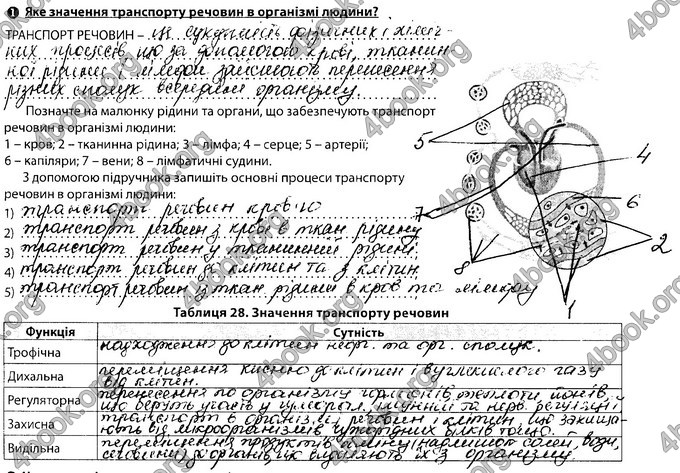 1 Яке значення транспорту речовин в організмі людини?
ТРАНСПОРТ РЕЧОВИН – це сукупність фізичних і хіміч-
них процесів що за допомогою крові, тканин-
ної рідини і лімфи здійснюють перенесення
різних сполук всередині організму.
Позначте на малюнку рідини та органи, що забезпечують транспорт
речовин в організмі людини:
1 – кров; 2 – тканинна рідина; 3 – лімфа; 4 – серце; 5 – артерії;
6 – капіляри; 7 – вени; 8 – лімфатичні судини.
З допомогою підручника запишіть основні процеси транспорту
речовин в організмі людини:
1) транспорт речовин кров'ю
2) транспорт речовин з крові в ткан рідину
3) транспорт речовин у тканинній рідині
4) транспорт речовин до клітин та з клітин
5) транспорт речовин з ткан рідини в кров та лімфу
5
4
7
6
8
2
1
Таблиця 28. Значення транспорту речовин
Функція Сутність
Трофічна надходження до клітин неорг. та орг. сполук.
Дихальна переміщення кисню до клітин і вуглекислого газу
від клітин.
Регуляторна перенесення по організму гормонів, теплоти, йонів,
що беруть участь у гуморал., імунній та нерв. регуляції
Захисна транспорт в організмі речовин і клітин, що захища-
ють від мікроорганізмів чужорідних білків тощо.
Видільна переміщення продуктів обміну (надлишок солей, води,
сечовини) до органів, які видаляють їх з організму.
4book.org